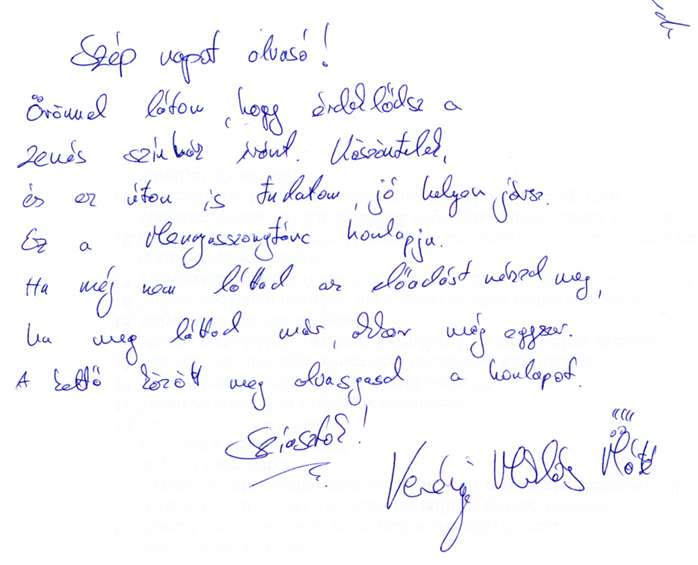 Szép napot olvasó!
Örömmel látom, hogy érdeklődsz a
zenés színház iránt. Köszöntelek,
és ez úton is tudatom, jó helyen jársz.
Ez a Menyasszonytánc honlapja.
Ha még nem láttad az előadást nézzed meg,
ha meg láttad már, akkor még egyszer.
A kettő között meg olvasgasd a honlapot.
Sziasztok!